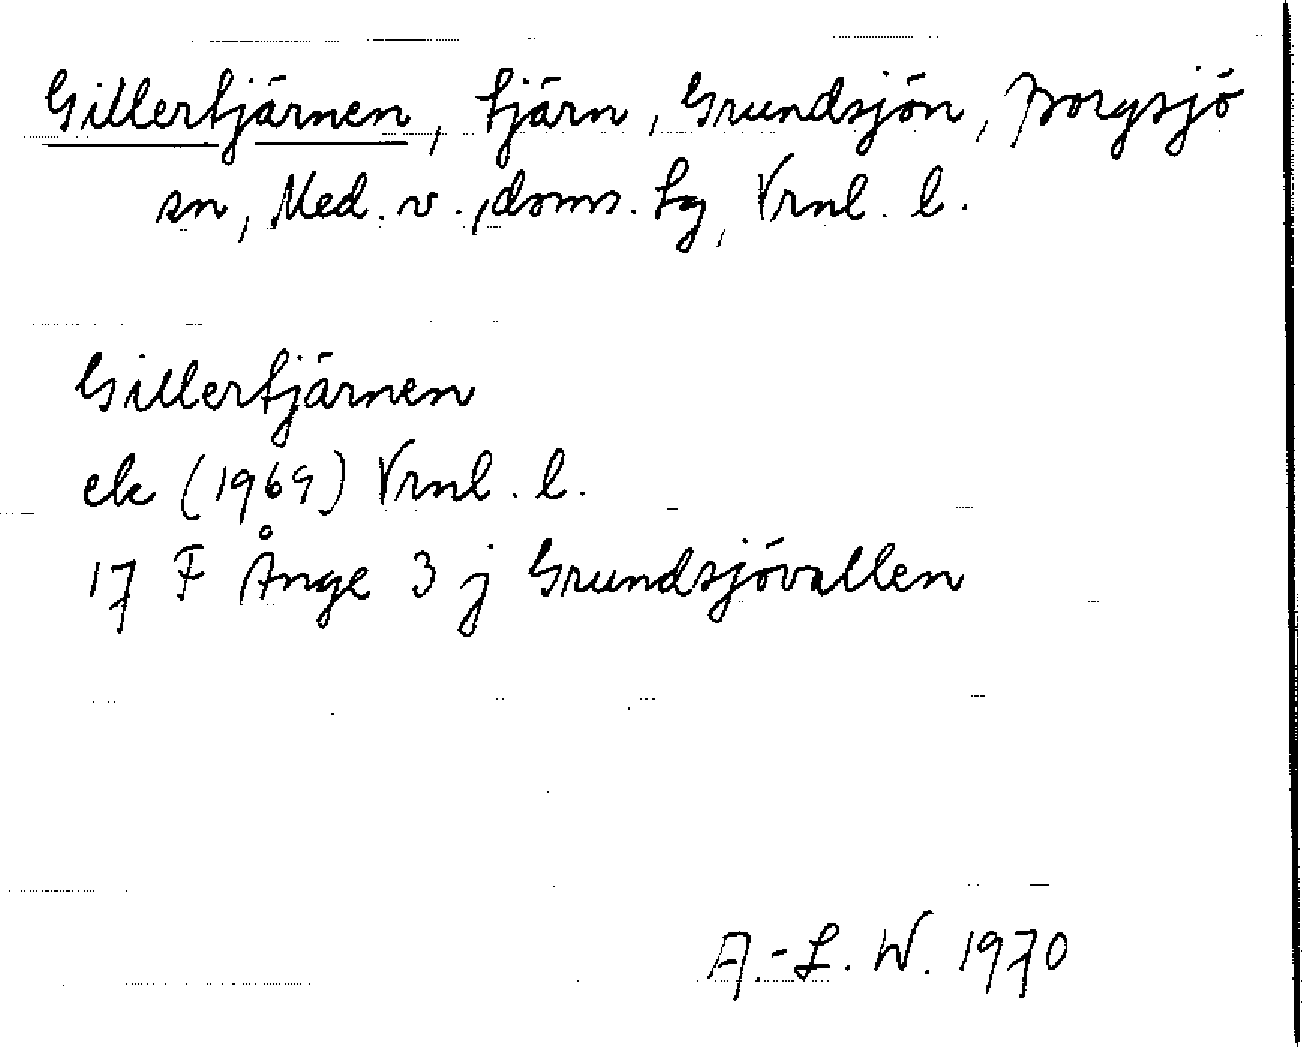 Gillertjärnen, tjärn, Grundsjön, Borgsjö
sn, Med. v., doms. tg, Vrnl. l.
Gillertjärnen
ek (1969) Vrnl. l.
17 F Ånge 3 j Grundsjövallen
A.-L. W. 1970